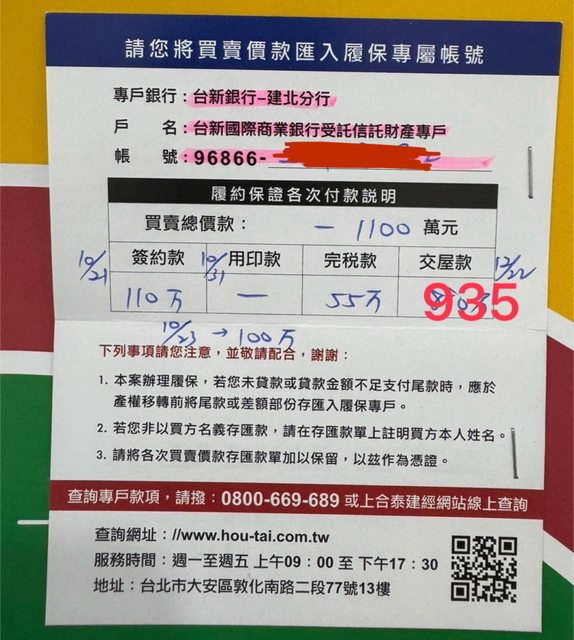 請您將買賣價款匯入履保專屬帳號
專戶銀行：台新銀行-建北分行
戶　名：台新國際商業銀行受託信託財產專戶
帳　號：96866-
履約保證各次付款說明
買賣總價款： - 1100 萬元
10/21 簽約款 10/31 用印款 完稅款 交屋款 12/22
110万 — 55万 935
10/23 → 100万
下列事項請您注意，並敬請配合，謝謝：
1. 本案辦理履保，若您未貸款或貸款金額不足支付尾款時，應於
產權移轉前將尾款或差額部份存匯入履保專戶。
2. 若您非以買方名義存匯款，請在存匯款單上註明買方本人姓名。
3. 請將各次買賣價款存匯款單加以保留，以茲作為憑證。
查詢專戶款項，請撥：0800-669-689 或上合泰建經網站線上查詢
查詢網址：//www.hou-tai.com.tw
服務時間：週一至週五 上午09：00 至 下午17：30
地址：台北市大安區敦化南路二段77號13樓